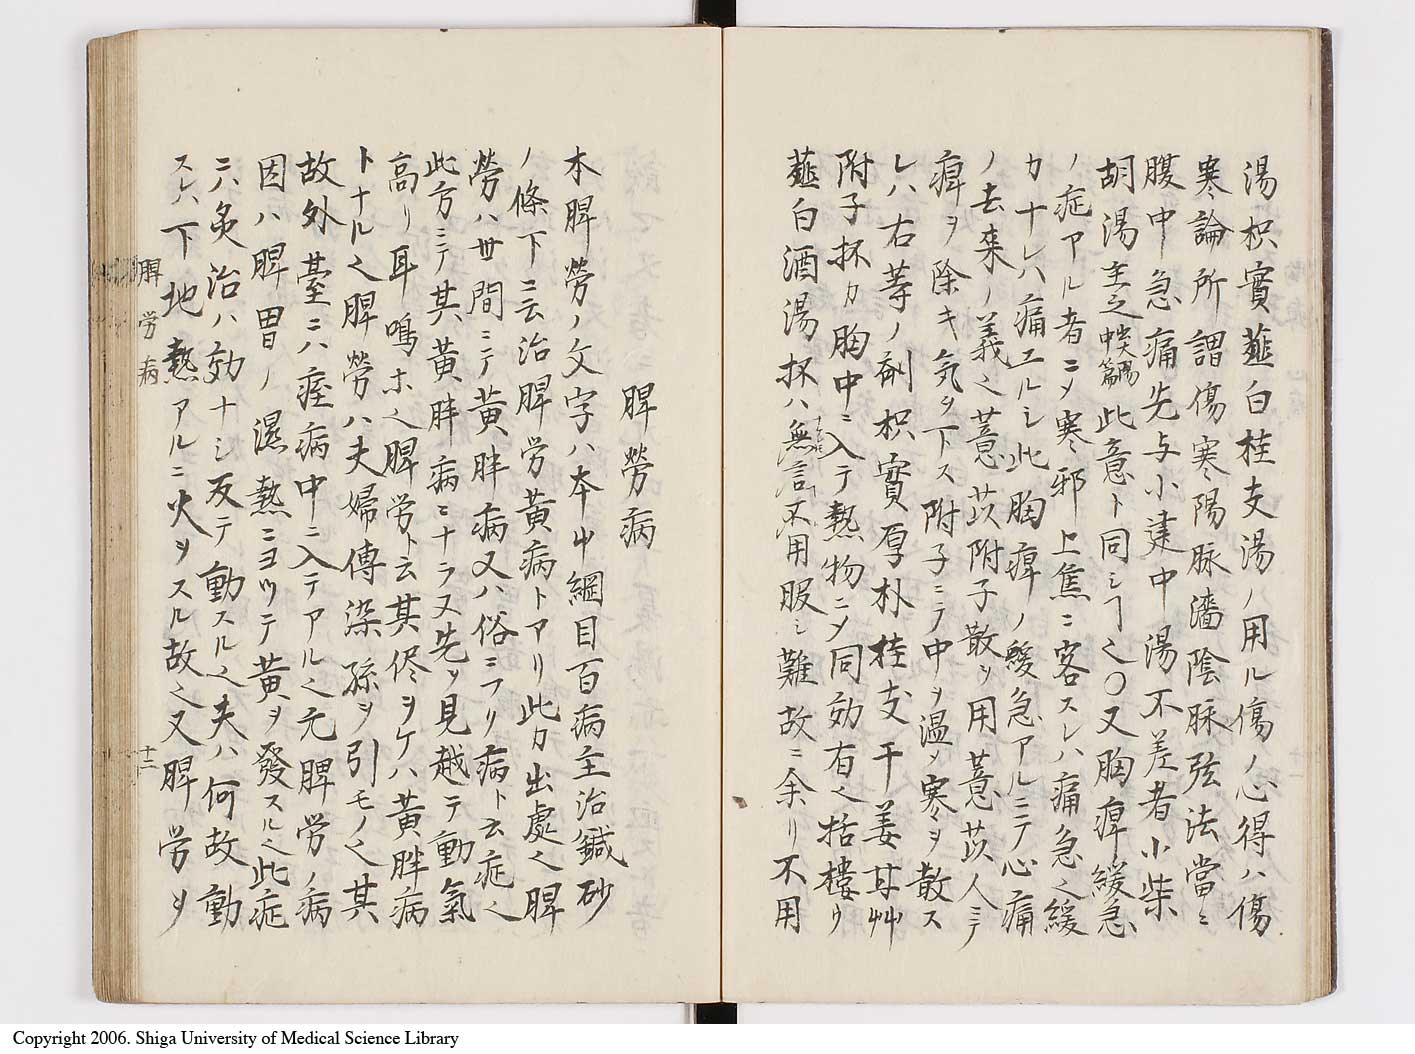 湯枳實薤白桂支湯ノ用ル傷ノ心得ハ傷
寒論所謂傷寒陽脉濇陰脉弦法當ニ
腹中急痛先与小建中湯不差者小柴
胡湯主之太陽中篇此意ト同シヿ也〇又胸痺緩急
ノ症アル者ニメ寒邪上焦ニ客スレハ痛急也緩
カナレハ痛ユルシ此胸痺ノ緩急アルニテ心痛
ノ去来ノ義也薏苡附子散ヲ用薏苡人ニテ
痺ヲ除キ気ヲ下ス附子ニテ中ヲ温メ寒ヲ散ス
レハ右蒡ノ剤枳實厚朴桂支干姜甘艸
附子抔カ胸中ニ入テ熱物ニメ同効有也括樓
薤白酒湯抔ハ無言又用服シ難故ニ余リ不用
脾勞病
本脾勞ノ文字ハ本艸綱目百病主治鍼砂
ノ條下ニ云治脾労黄病トアリ此カ出處也脾
勞ハ世間ニテ黄胖病又ハ俗ニフリ病ト云症也
此方ニテ其黄胖病ニナラヌ先ツ見越テ動氣
高リ耳鳴ホ也脾労ト云其侭ヲケハ黄胖病
トナル也脾勞ハ夫婦傳染孫ヲ引モノ也其
故外臺ニハ痓病中ニ入テアル也元脾労ノ病
因ハ脾胃ノ濕熱ニヨツテ黄ヲ發スル也此症
ニハ灸治ハ効ナシ反テ動スル也夫ハ何故動
スレハ下地熱アルニ火ヲスル故也又脾労ヲ
脾労病
十二
Copyright 2006. Shiga University of Medical Science Library